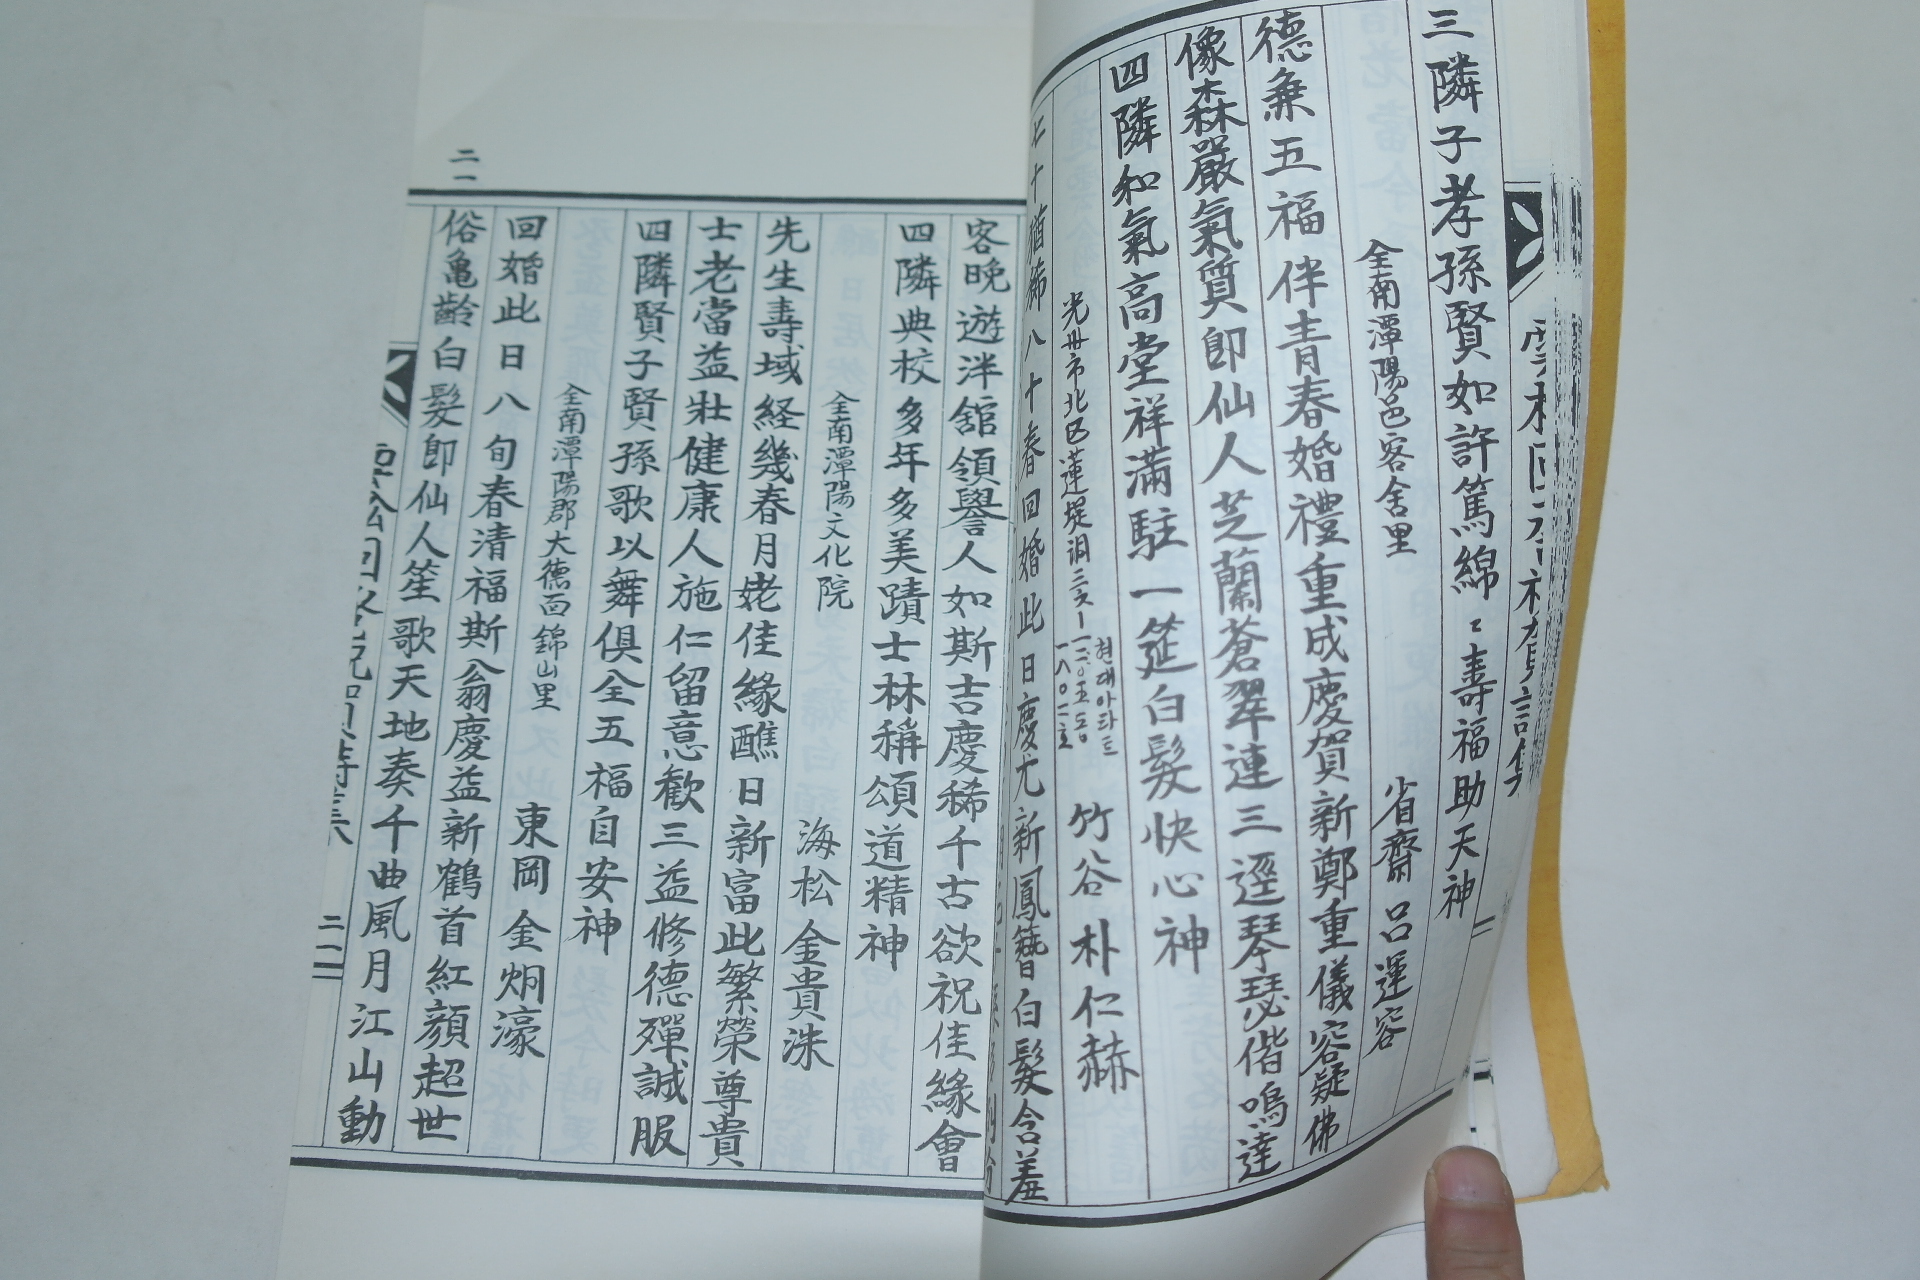 三隣子孝孫賢如許篤綿々壽福助天神
全南潭陽邑客舍里　省齋　呂運容
德兼五福伴青春婚禮重成慶賀新鄭重儀容疑佛
像森嚴氣質即仙人芝蘭蒼翠連三逕琴瑟偕鳴達
四隣和氣高堂祥滿駐一筵白髮快心神
光州市北区蓮堤洞　현대아파트　竹谷　朴仁赫
七十猶稀八十春回婚此日慶尤新鳳簪白髮含羞
客晚遊泮舘領譽人如斯吉慶稀千古欲祝佳緣會
四隣典校多年多美蹟士林稱頌道精神
全南潭陽文化院　海松　金貴洙
先生壽域経幾春月姥佳緣醮日新富此繁榮尊貴
士老當益壯健康人施仁留意歡三益修德殫誠服
四隣賢子賢孫歌以舞俱全五福自安神
全南潭陽郡大德面錦山里　東岡　金炯濠
回婚此日八旬春清福斯翁慶益新鶴首紅顔超世
俗亀齡白髮即仙人笙歌天地奏千曲風月江山動
二一